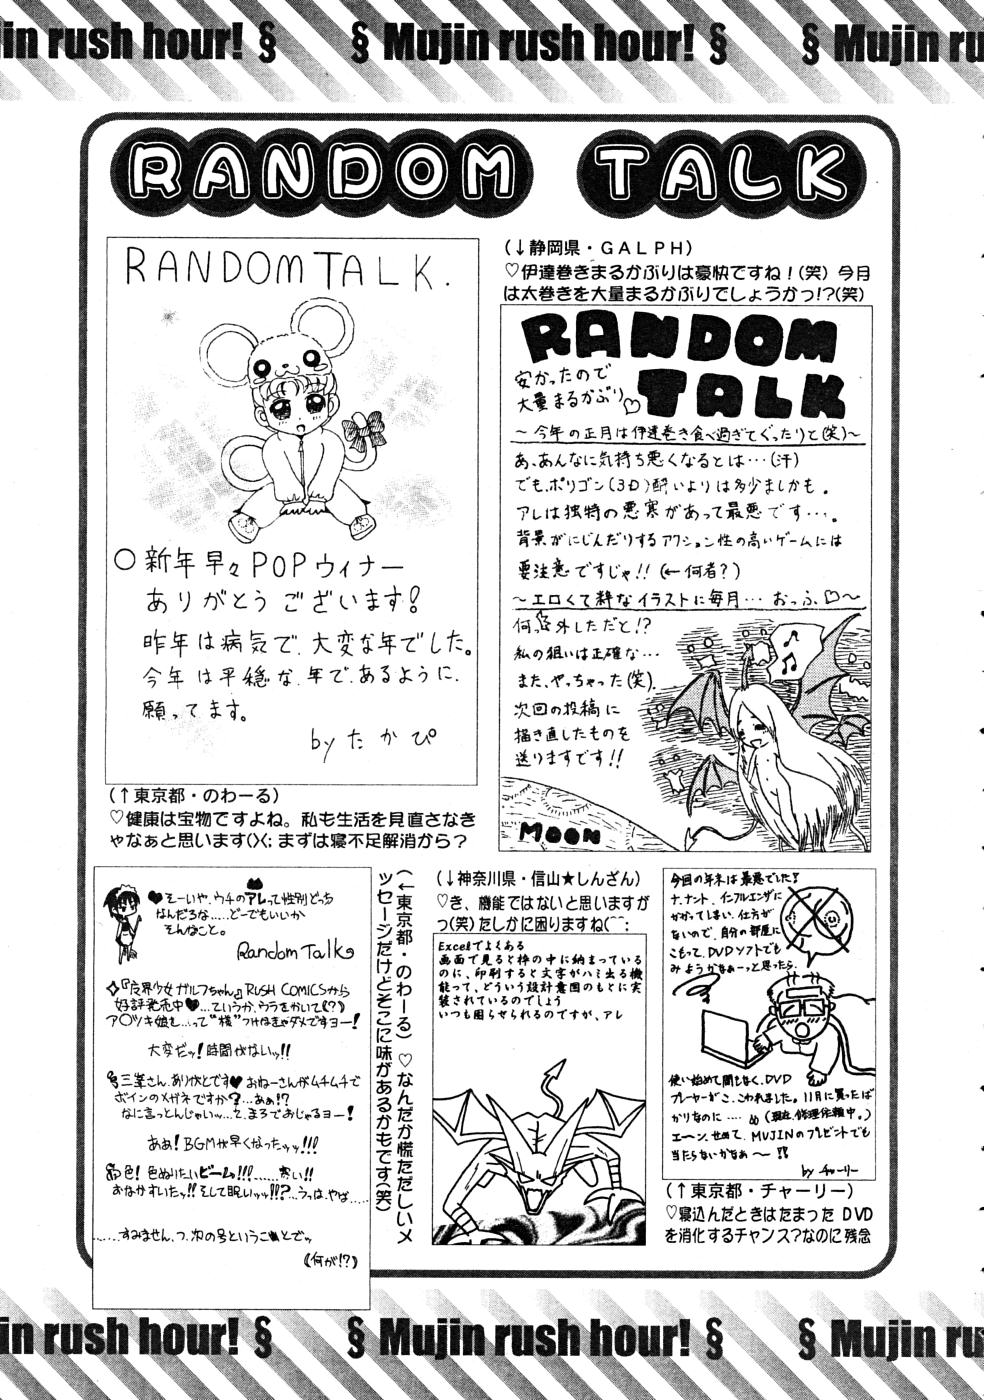 Mujin rush hour! §
§ Mujin rush hour! §
§ Mujin ru
RANDOM TALK
RANDOM TALK.
○新年早々POPウィナー
ありがとうございます!
昨年は病気で、大変な年でした。
今年は平穏な年で、あるように、
願ってます。
by たかぴ
(↑東京都・のわーる)
♡健康は宝物ですよね。私も生活を見直さなき
ゃなぁと思います()<; まずは寝不足解消から?
(↓静岡県・GALPH)
♡伊達巻きまるかぶりは豪快ですね!(笑) 今月
は太巻きを大量まるかぶりでしょうかっ!?(笑)
RANDOM
TALK
安かったので
大量まるかぶり♡
~今年の正月は伊達巻き食べ過ぎてぐったりと(笑)~
あ、あんなに気持ち悪くなるとは…(汗)
でも、ポリゴン(3D)酔いよりは多少ましかも。
アレは独特の悪寒があって最悪です…。
背景がにじんだりするアクション性の高いゲームには
要注意ですじゃ!! (←何者?)
~エロくて粋なイラストに毎月… おっふ♡~
何っ外しただと!?
私の狙いは正確な…
また、やっちゃった(笑)。
次回の投稿に
描き直したものを
送りますです!!
MOON
♥そーいや、ウチのアレって性別どっち
なんだろな……どーでもいいか
そんなこと。
Random Talk
RUSH COMICSから
好評発売中♥…ていうか、ウラをかいて(?)
ア○ツキ娘も…って"様"つけなきゃダメですヨー!
大変だッ!時間がないッ!!
三峯さん、ありがとです♥おねーさんがムチムチで
ボインのメガネですか?…あぁ!?
なに言っとんじゃいッ…て、まろでおじゃるヨー!
ああ!BGMが早くなったッッ!!!
色!色ぬりたいビームッ!!!……寒い!!
おなかすいたッ!!そして眠いッッ!!?…うっは、やば……
……すみません、つ、次の号ということでッ
(何が!?)
(←東京都・のわーる) ♡なんだか慌ただしいメ
ッセージだけどそこに味があるかもです(笑)
(↓神奈川県・信山★しんざん)
♡き、機能ではないと思いますが
っ(笑)たしかに困りますね(⌒;
Excelでよくある
画面で見ると枠の中に納まっている
のに、印刷すると文字がハミ出る機
能って、どういう設計意図のもとに実
装されているのでしょう
いつも困らせられるのですが、アレ
今回の年末は最悪でした!
ナ、ナント、インフルエンザに
かかってしまい、仕方が
ないので、自分の部屋に
こもって、DVDソフトでも
みようかなぁーっと思ったら、
使い始めて間もなく、DVD
プレーヤーがこ、こわれました。11月に買ったば
かりなのに…… (現在、修理依頼中。)
エ~ン、せめて、MUJINのプレゼントでも
当たらないかなぁ~ !!
by チャーリー
(↑東京都・チャーリー)
♡寝込んだときはたまった DVD
を消化するチャンス?なのに残念
in rush hour! §
§ Mujin rush hour! §
§ Mujin ru